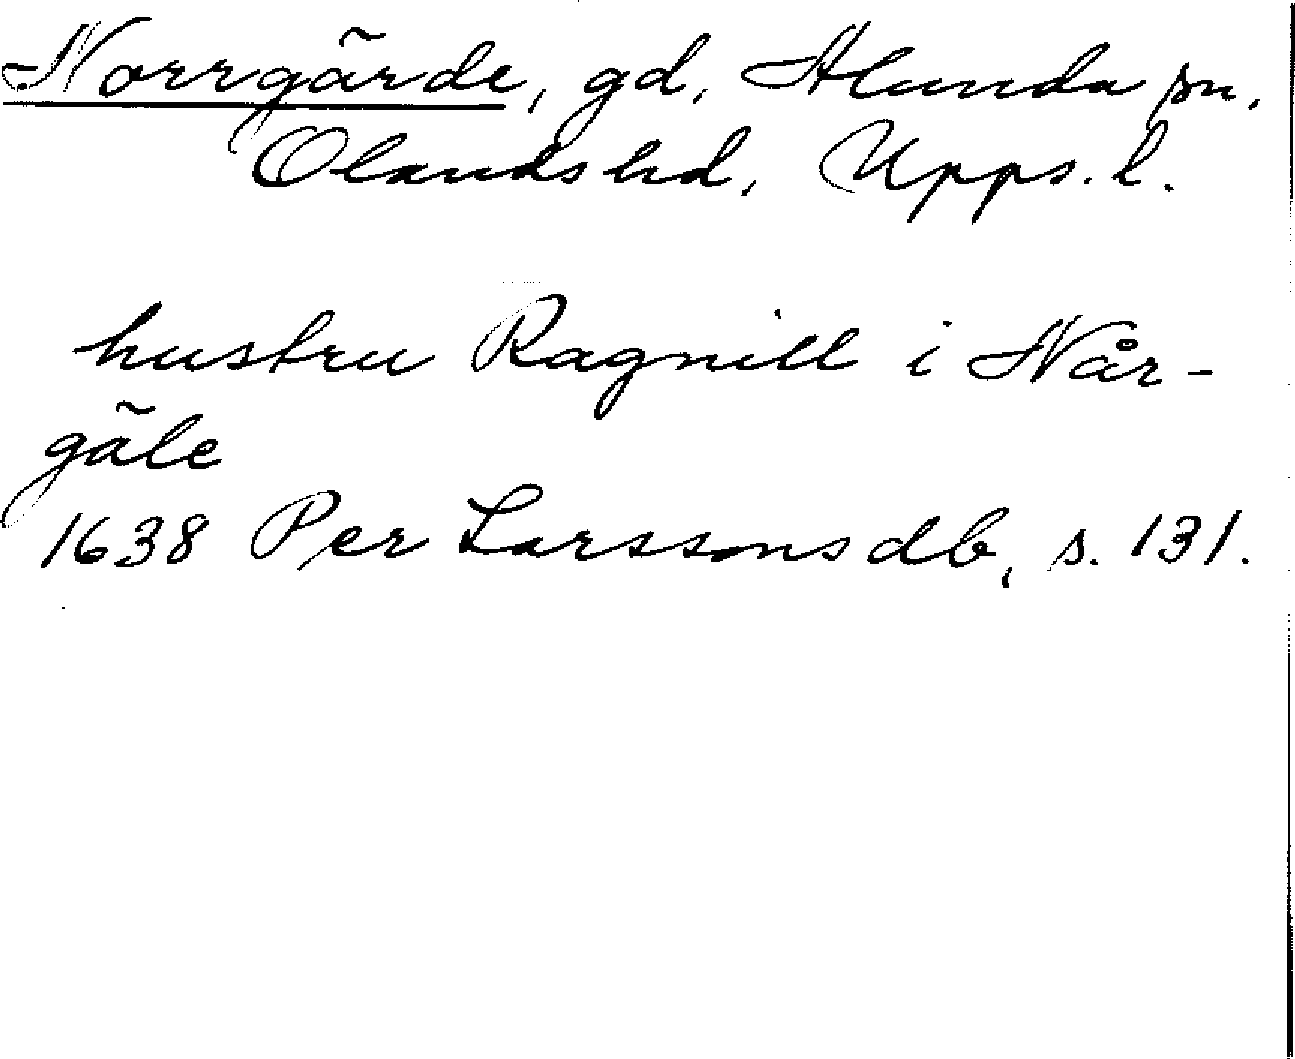 Norrgärde, gd, Alunda sn,
Olands hd, Upps. l.
hustru Ragnill i Når-
gäle
1638 Per Larssons db, s. 131.